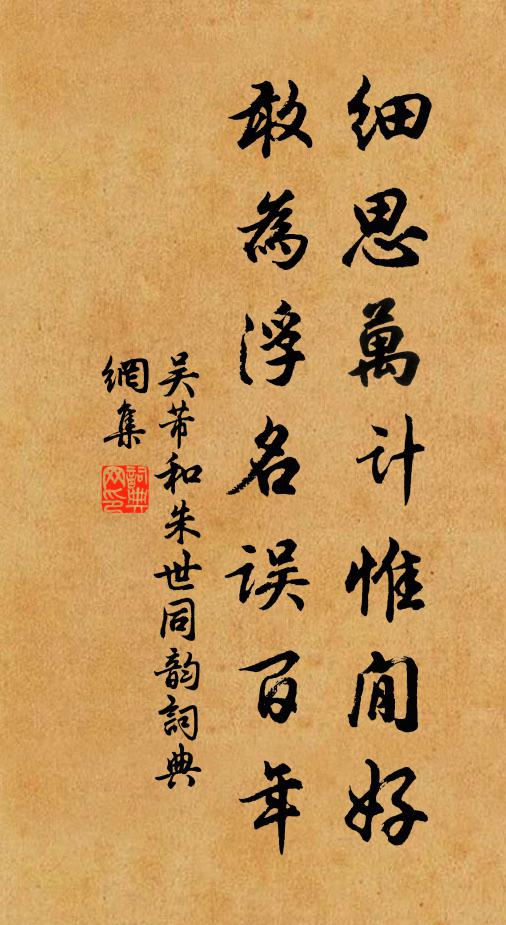 细思萬计惟閒好
敢為浮名误百年
吴芾和朱世同韵詞典
網集
詞典網印